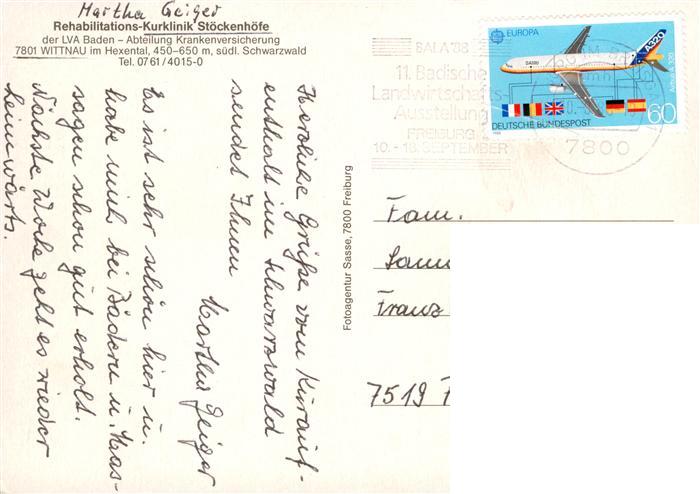 Martha Geiger
Rehabilitations-Kurklinik Stöckenhöfe
der LVA Baden – Abteilung Krankenversicherung
7801 WITTNAU im Hexental, 450–650 m, südl. Schwarzwald
Tel. 0761/4015-0
Herzliche Grüße vom Kurauf-
enthalt im Schwarzwald
sendet Ihnen
Martha Geiger
Es ist sehr schön hier u.
habe mich bei Bädern u. Mas-
sagen schon gut erholt.
Nächste Woche geht es wieder
heimwärts.
Fotoagentur Sasse, 7800 Freiburg
BALA'88
11. Badische
Landwirtschafts-
Ausstellung
FREIBURG
10. - 18. SEPTEMBER
7800
EUROPA
A320
Airbus A320
60
DEUTSCHE BUNDESPOST
Fam.
Franz
7519